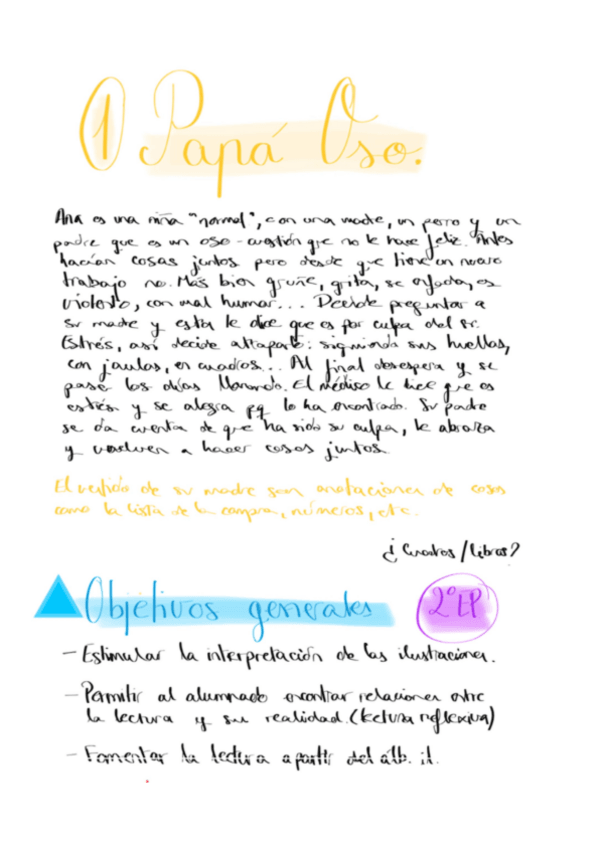 1 Papá Oso.
Ana es una niña "normal", con una madre, un perro y un
padre que es un oso - cuestión que no le hace feliz. Antes
hacían cosas juntos pero desde que tiene un nuevo
trabajo no. Más bien gruñe, grita, se enfada, es
violento, con mal humor... Decide preguntar a
su madre y esta le dice que es por culpa del Sr.
Estrés, así decide atraparlo: siguiendo sus huellas,
con jaulas, en cuadros... Al final desespera y se
pasa los días llorando. El médico le dice que es
estrés y se alegra pq lo ha encontrado. Su padre
se da cuenta de que ha sido su culpa, le abraza
y vuelven a hacer cosas juntos.
El vestido de su madre son anotaciones de cosas
como la lista de la compra, números, etc.
¿Cuadros/libros?
Objetivos generales 2º EP
- Estimular la interpretación de las ilustraciones.
- Permitir al alumnado encontrar relaciones entre
la lectura y su realidad. (lectura reflexiva)
- Fomentar la lectura a partir del álb. il.